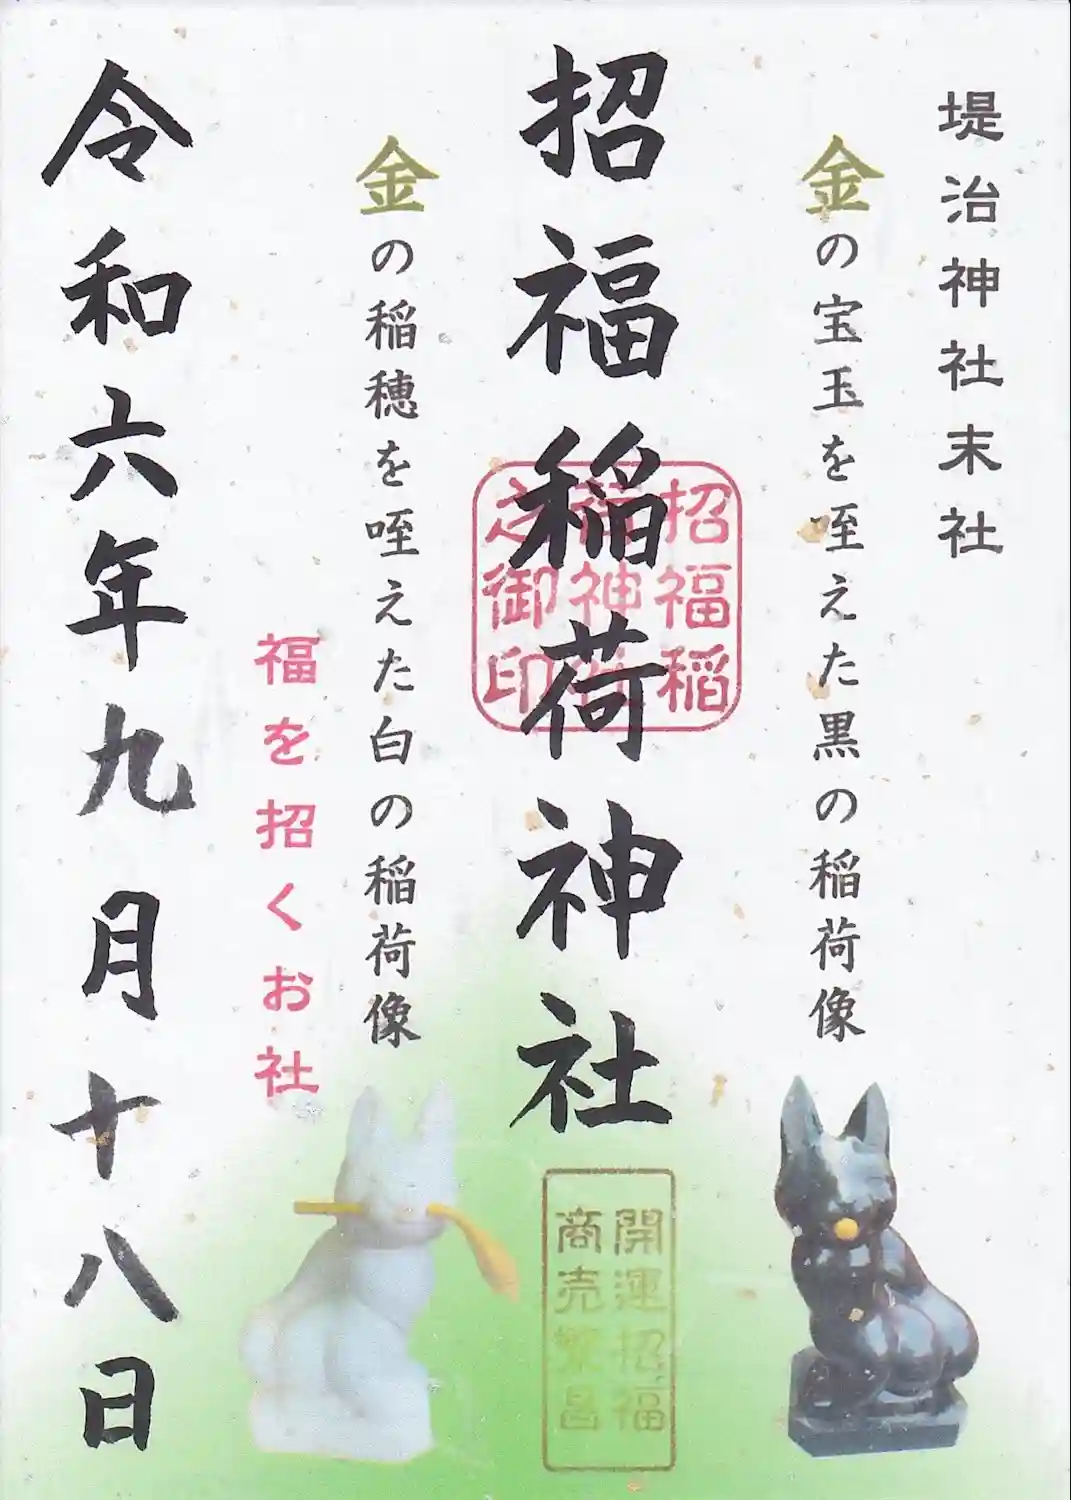 堤治神社末社
金の宝玉を咥えた黒の稲荷像
招福稲荷神社
招福稲
荷神社
之御印
開運招福
商売繁昌
金の稲穂を咥えた白の稲荷像
福を招くお社
令和六年九月十八日